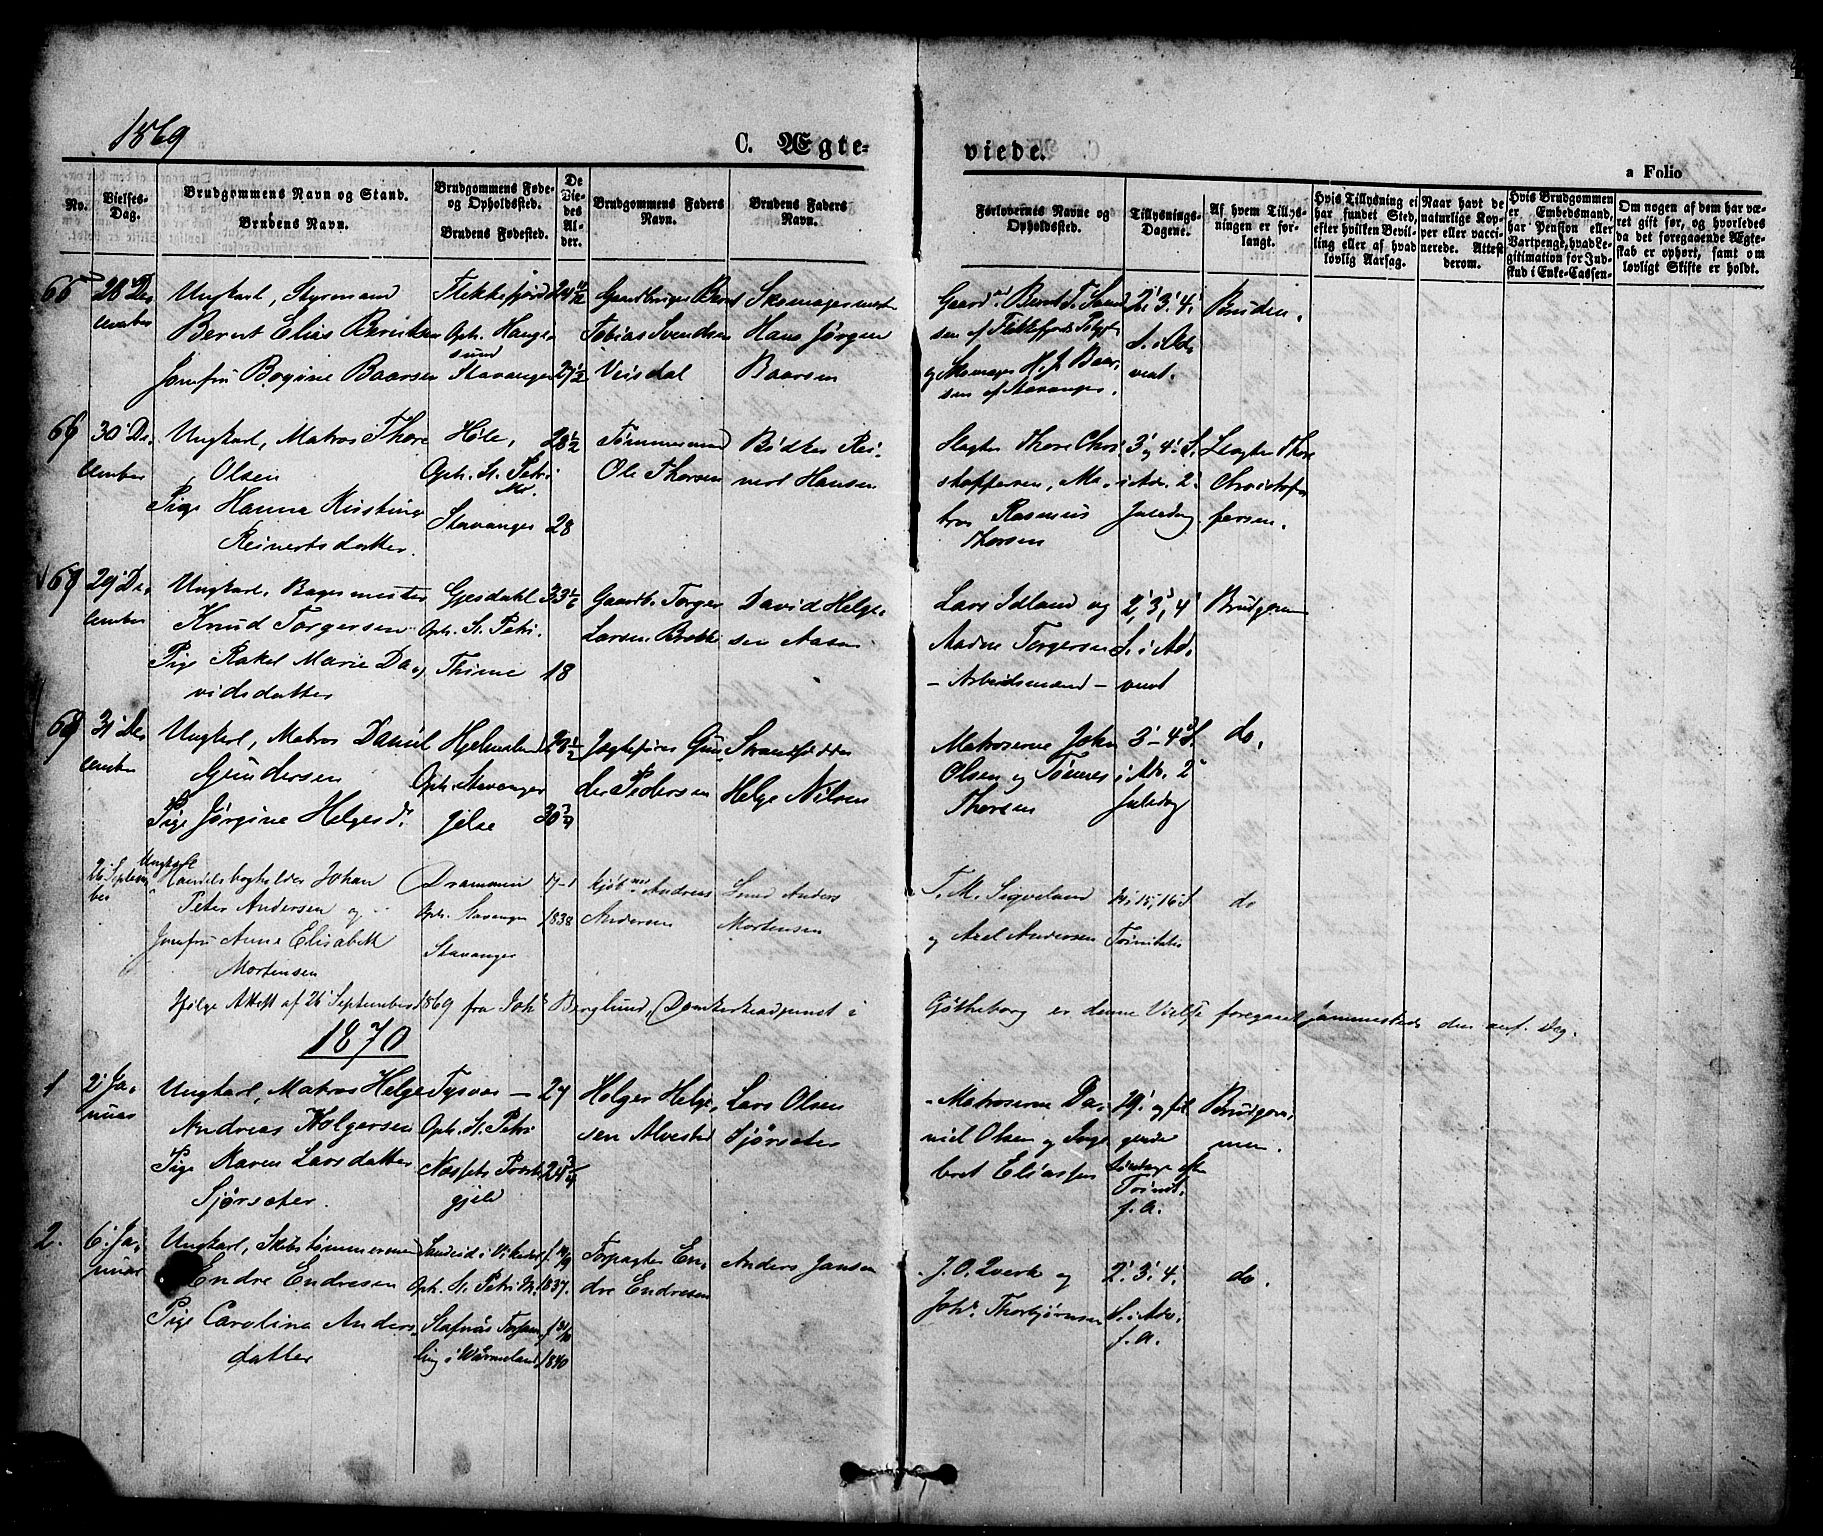 1869
C. Ægte-
viede.
a Folio
No.
Vielses-
Dag.
Brudgommens Navn og Stand.
Brudens Navn.
Brudgommens Føde-
og Opholdssted.
Brudens Fødested.
De
Vie-
des
Al-
der.
Brudgommens Faders
Navn.
Brudens Faders
Navn.
Forlovernes Navne og
Opholdssted.
Tillysnings-
Dagene.
Af hvem Tillys-
ningen er for-
langt.
Hvis Tillysning ei
har fundet Sted,
efter hvilken Bevil-
ling eller af hvad
lovlig Aarsag.
Naar havt de
naturlige Kop-
per eller vacci-
nerede. Attest
derom.
Hvis Brudgommen
er Embedsmand,
har Pension eller
Vartpenge, hvad Le-
gitimation for Ind-
skud i Enke-Cassen.
Om nogen af dem har væ-
ret gift før, og hvorledes
da det foregaaende Ægte-
skab er ophørt, samt om
lovligt Skifte er holdt.
28 De-
cember
Ungkarl, Styrmand
Bernt Elias Berntsen
Jomfru Bogine Baarsen
Flekkefjord
Oph. Hauge-
sund
Stavanger
Tobias Svendsen
Skomagermester
Hans Jørgen
Baarsen
sen af Flekkefjord
og Skomager H. J. Baar-
sen af Stavanger.
2' 3' 4'
S. i Ad-
vent.
Bruden.
30' De-
cember
Ungkarl, Matros Thore
Olsen
Pige Hanna Kirstine
Reinertsdatter.
Høle,
Oph. St. Petri
Stavanger
28
Tømmermand
Ole Thorsen
Bødker Rei-
nert Hansen
Slagter Thore Chri-
stoffersen, Ma-
tros Rasmus
Thorsen
3' og 4' S.
i Adv. 2'
Juledag
Slagter Thore
Christof-
fersen.
29' De-
cember
Ungkarl, Bagermester
Knud Torgersen
Pige Rakel Marie Da-
vidsdatter
Gjesdahl
Oph. St. Petri.
Thime
18
Gaardb. Torger
Larsen
David Helge-
sen Aasen
Lars Idland og
Aadne Torgersen
- Arbeidsmænd -
2', 3', 4'
S. i Ad-
vent
Brudgom
31' De-
cember
Ungkarl, Matros Daniel
Gundersen
Pige Jørgine Helgesd.
Hjelmeland
Oph. Stavanger
Jelse
Jægtefører Gun-
der Pedersen
Strandsidder
Helge Nilsen
Matroserne John
Olsen og Tønnes
Thorsen
3' - 4' S.
i Adv. 2'
Juledag
do.
26' Septem-
ber
Ungkarl
Handelsbogholder Johan
Peter Andersen og
Jomfru Anne Elisabeth
Mortensen
Drammen
Oph. Stavanger
Stavanger
17-1
1838
Kjøbmd. Andreas
Andersen
Smed Anders
Mortensen
T. M. Sigveland
og Axel Andersen
14', 15', 16' S.
Trinitatis
do
Ifølge Attest af 26' September 1869 fra Joh. Berglund, Domkirkeadjunct i Götheborg er denne Vielse foregaaet sammesteds den anf. Dag.
1870
1
2' Ja-
nuar
Ungkarl, Matros Helge
Andreas Holgersen
Pige Maren Larsdatter
Sjørsæter.
Tysvær
Oph. St. Petri
27
Holger Helge-
sen Alvested
Lars Olsen
Sjørsæter
Matroserne Da-
niel Olsen og Inge-
bret Eliassen
19' og føl-
gende
Søndage efter
Trinit.
f. A.
Brudgom-
men.
2.
6' Ja-
nuar
Ungkarl, Skibstømmermand
Endre Endresen
Pige Carolina Anders-
datter
Sandeid i Vikedal
Oph. St. Petri
1837.
i Wärmeland
1840
Forpagter En-
dre Endresen
Anders Jansen
J. O. Qverk og
Johs. Thorbjørnsen
2' 3' 4.
S. i Adv.
f. A.
do.